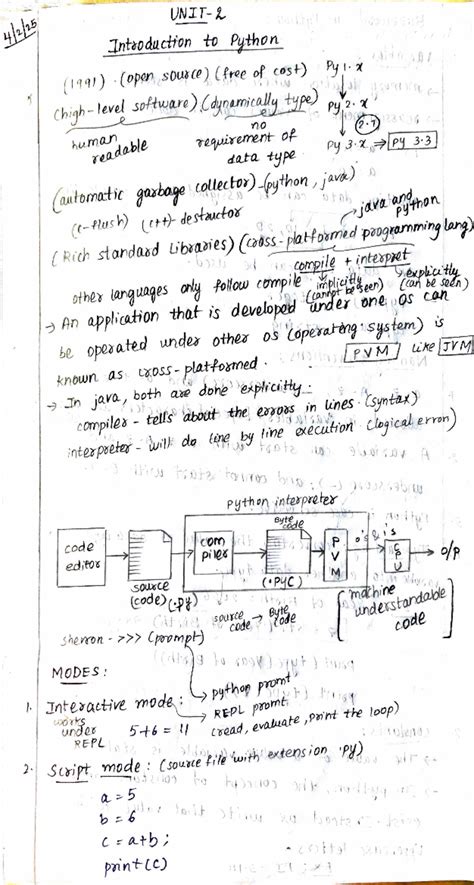 4/2/25
UNIT-2
Introduction to Python
(1991) · (open source) (free of cost) Py 1.x
(high-level software) (dynamically type) Py 2.x
(2.7)
human readable
no requirement of data type
Py 3.x ⇒ PY 3.3
(automatic garbage collector) - (python, java)
(c-flush) (c++)- destructor
java and python
(Rich standard Libraries) (cross-platformed programming lang)
compile + interpret
other languages only follow compile
implicitly (cannot be seen)
explicitly (can be seen)
→ An application that is developed under one os can
be operated under other os (operating system) is
known as cross-platformed.
PVM like JVM
→ In java, both are done explicitly:
compiler - tells about the errors in lines (syntax)
interpreter - will do line by line execution (logical erron)
Python interpreter
code editor
source (code) (.py)
com piler
Byte code
(.PYC)
P V M
0's & 1's
CPU
O/P
source code → Byte code
[machine understandable code]
->>> (prompt)
MODES:
python promt
1. Interactive mode: REPL promt
works under REPL
5+6 = 11
(read, evaluate, print the loop)
2. Script mode: (source file with extension .py)
a = 5
b = 6
c = a+b;
print(c)